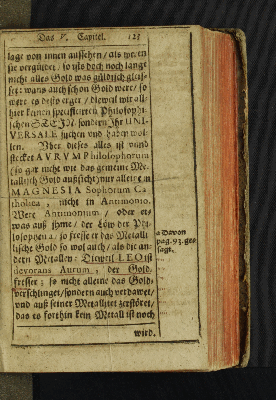 Das V. Capitel. 123
lage von innen aussehen / als weren
sie vergüldet / so ists doch noch lange
nicht alles Gold was güldisch gleis-
set: wans auch schon Gold were / so
were es desto erger / dieweil wir all-
hier keinen specificirten Philosophi-
schen STEIN, sondern Ihr UNI-
VERSALE suchen und haben wol-
len. Uber dieses alles ist
stecket AURUM Philosophorum
(so gar nicht wie das gemeine Me-
tallisch Gold außsicht) nur allein in
MAGNESIA Sophorum Ca-
tholica, nicht in Antimonio.
Were Antimonium / oder et-
was auß ihme / der Löw der Phi-
losophen a: so fresse er das Metalli-
lische Gold so wol auch / als die an-
dern Metallen: Dieweil LEO ist
devorans Aurum, der Gold-
fresser; so nicht alleine das Gold
verschlinget / sondern auch verdawet /
und auß seiner Metallitet zerstöret /
das es forthin kein Metall ist noch
wird.
a Davon
pag. 93. ge-
sagt.